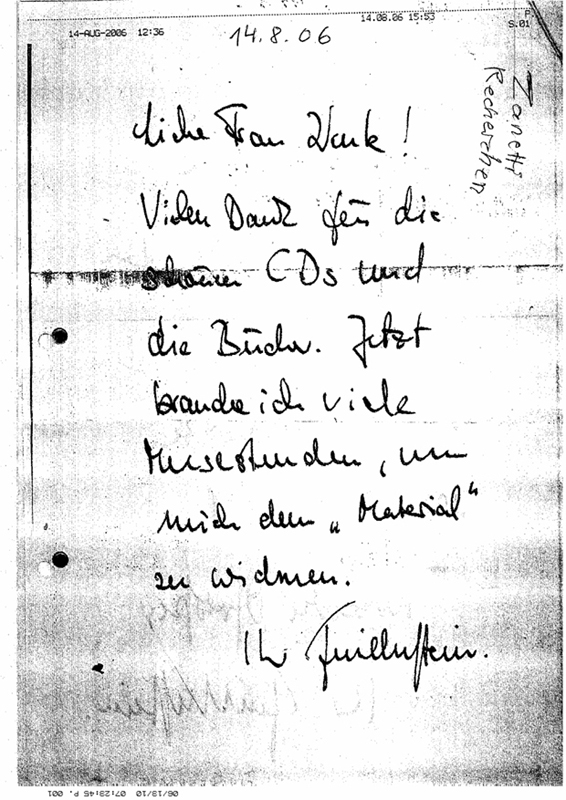 14-AUG-2006 12:36
14.08.06 15:53
P.
S.01
14.8.06
Zanetti
Recherchen
Liebe Frau
Vielen Dank für die
schönen CDs und
die Bücher. Jetzt
brauche ich viele
Musestunden, um
mich dem „Material“
zu widmen.
Ihr
06/13/10 07:23:45 P 001